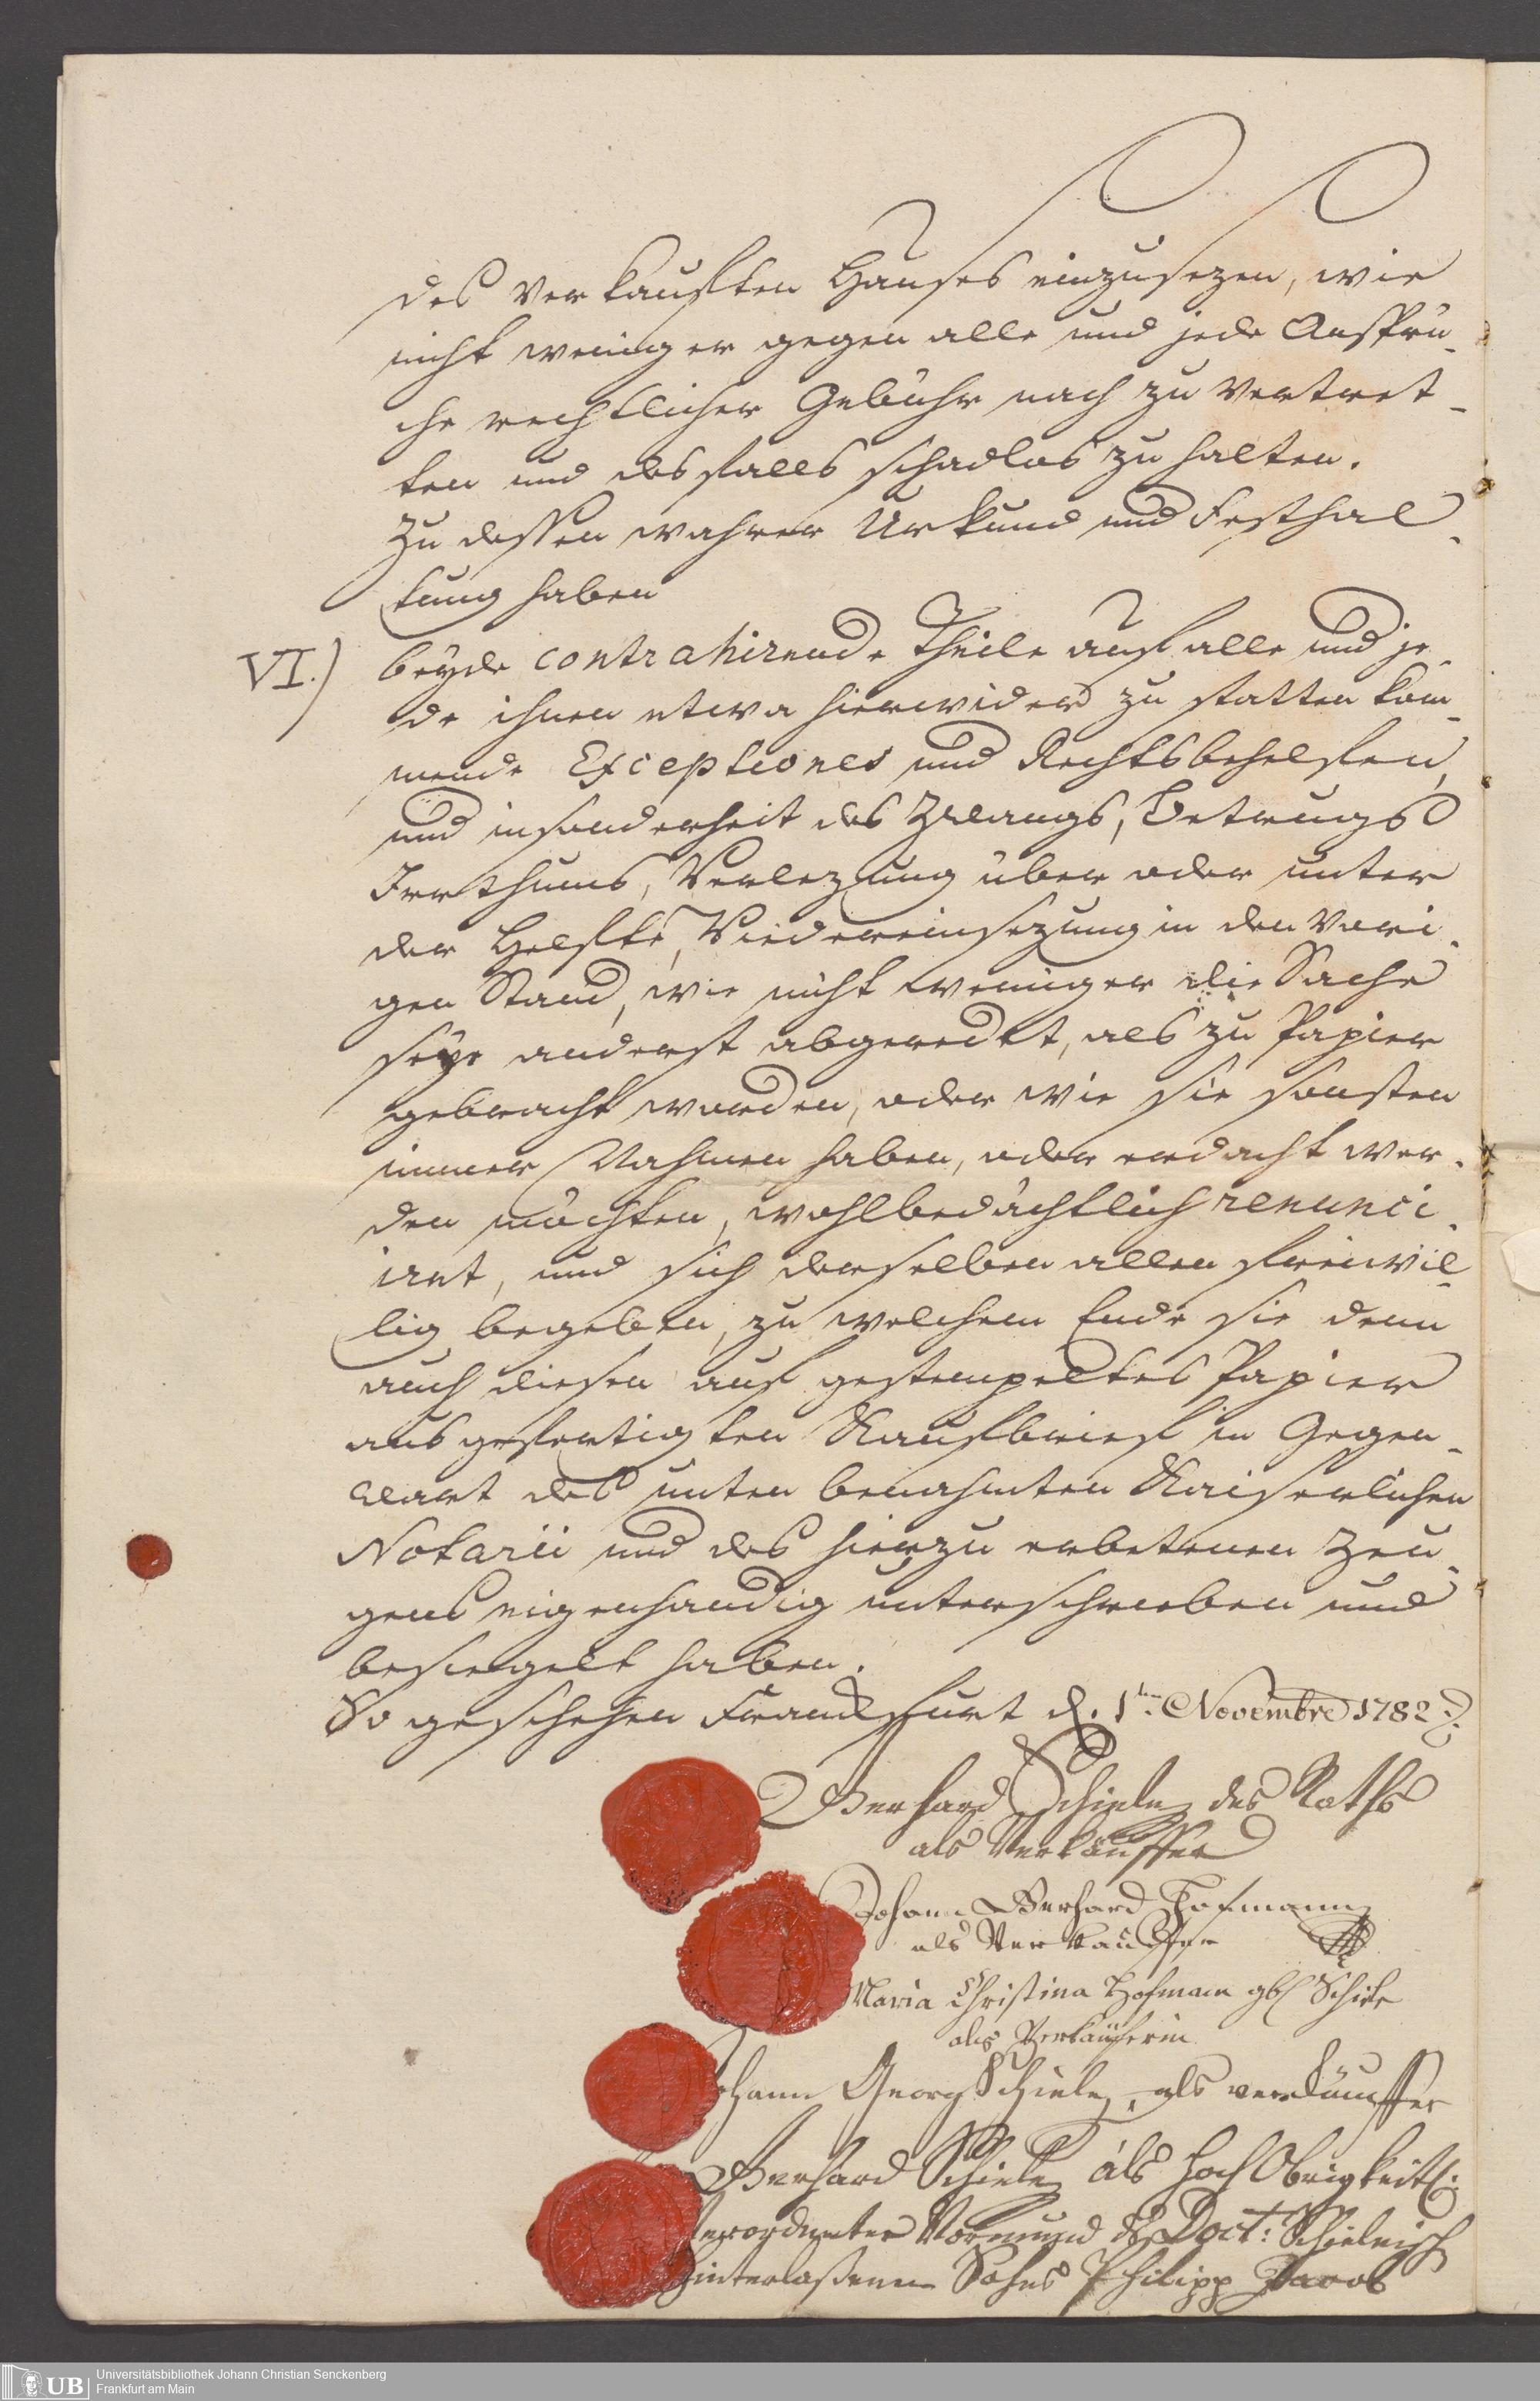 des verkaufften Hauses einzusezen, wie
nicht weniger gegen alle und jede Ansprü-
che rechtlicher Gebühr nach zu vertret-
ten und desfalls schadlos zu halten.
Zu dessen wahrer Urkund und Festhal-
tung haben
VI.) beyde contrahirende Theile auf alle und je-
de ihnen etwa hierwider zu statten kom-
mende Exceptiones und Rechtsbehelffen,
und insonderheit des Zwangs, Betrugs
Irrthums, Verlezung über oder unter
der Helffte, Wiedereinsezung in den vori-
gen Stand, wie nicht weniger die Sache
seye anderst abgeredet, als zu Papier
gebracht worden, oder wie sie sonsten
immer Nahmen haben, oder erdacht wer-
den möchten, wohlbedächtlich renunci-
iret, und sich derselben allen freiwil-
lig begeben, zu welchem Ende sie denn
auch diesen auf gestempeltes Papier
ausgefertigten Kaufbrief in Gegen-
wart des unten benahmten Kaiserlichen
Notarii und des hierzu erbetenen Zeu-
gens eigenhändig unterschrieben und
besiegelt haben.
So geschehen Franckfurt d. 1ten Novembre 1782.
Gerhard Schiele des Raths
als Verkäuffer
Johann Gerhard Hofmann
als Verkäuffer
Maria Christina Hofmann gbl Schiele
als Verkäuferin
Johann Georg Schiele, als verkäuffer
Gerhard Schiele als Hoch Obrigkeitl:
verordneter Vormund des Doct: Schieleisch
hinterlaßenen Sohns Philipp Jacob
UB Universitätsbibliothek Johann Christian Senckenberg
Frankfurt am Main